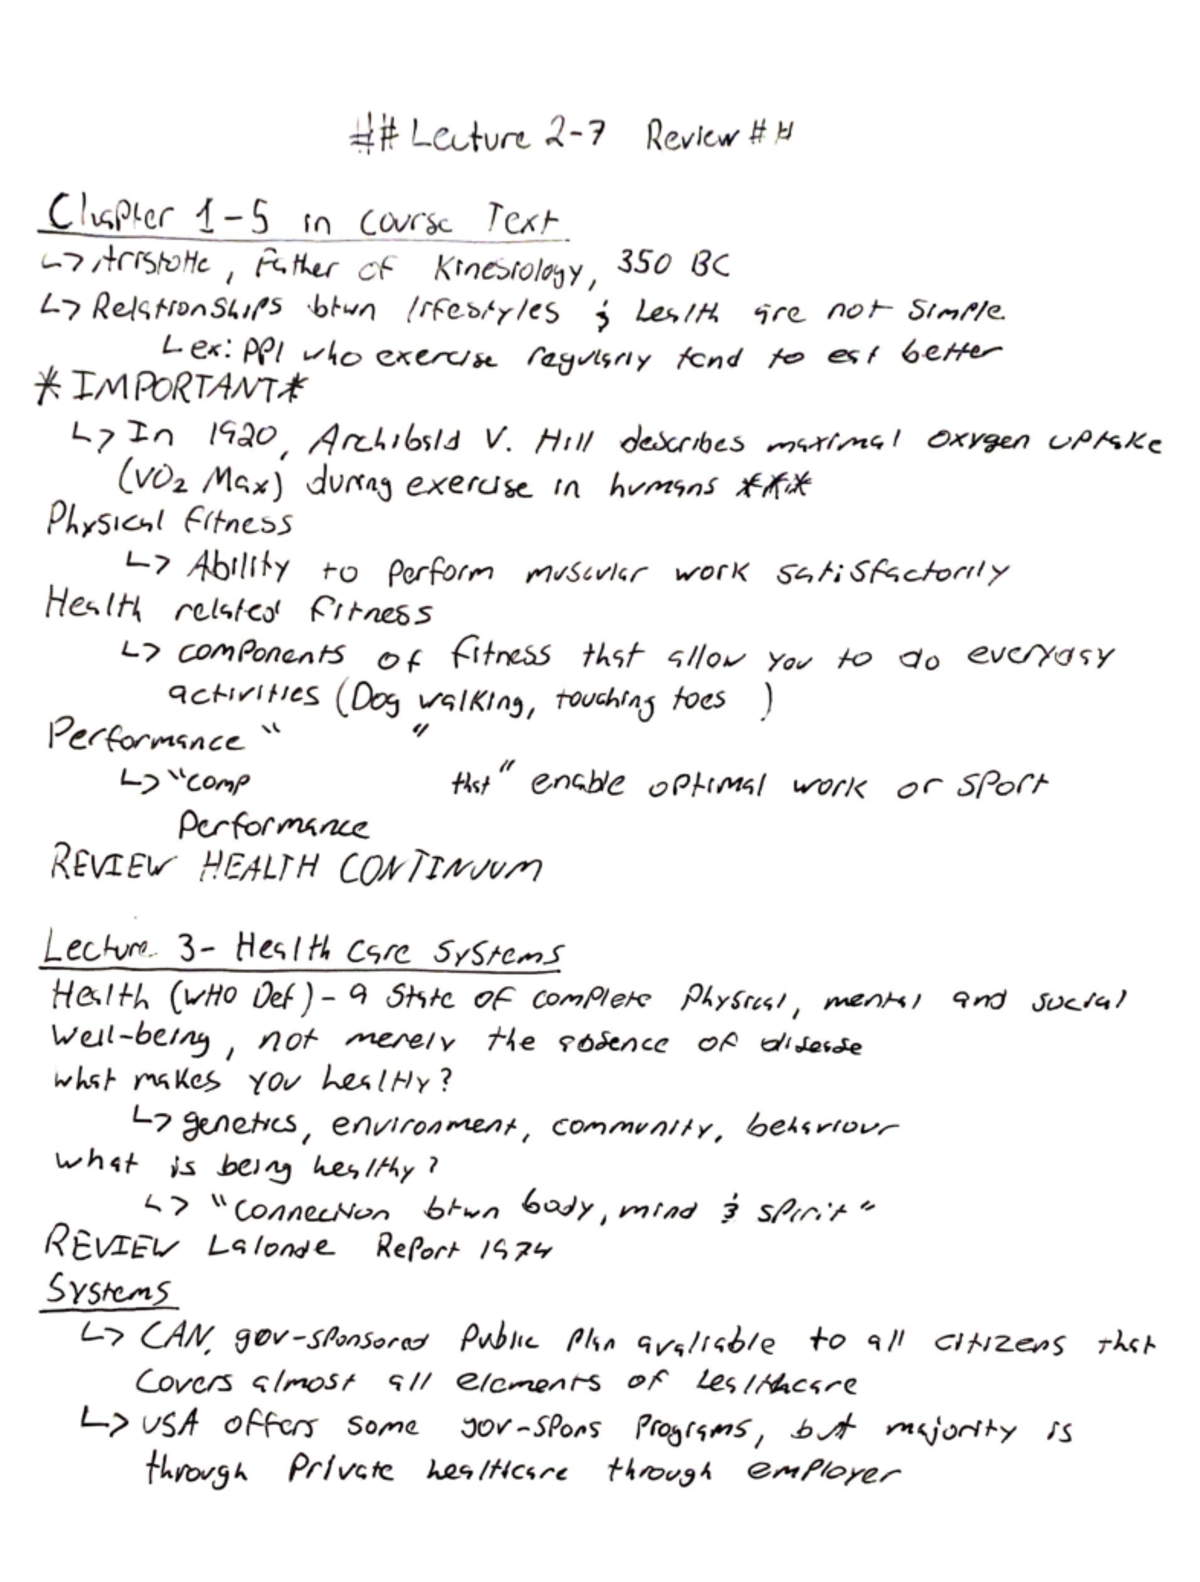 ## Lecture 2-7 Review ##
Chapter 1-5 in Course Text
↳ Aristotle, Father of Kinesiology, 350 BC
↳ Relationships btwn lifestyles & health are not simple.
↳ ex: ppl who exercise regularly tend to eat better
*IMPORTANT*
↳ In 1920, Archibald V. Hill describes maximal oxygen uptake
(VO₂ Max) during exercise in humans ***
Physical fitness
↳ Ability to perform muscular work satisfactorily
Health related fitness
↳ components of fitness that allow you to do everyday
activities (Dog walking, touching toes )
Performance " "
↳ "comp that" enable optimal work or sport
performance
REVIEW HEALTH CONTINUUM
Lecture 3- Health Care Systems
Health (WHO Def) - a state of complete physical, mental and social
well-being, not merely the absence of disease
what makes you healthy?
↳ genetics, environment, community, behaviour
what is being healthy?
↳ "connection btwn body, mind & spirit"
REVIEW Lalonde Report 1974
Systems
↳ CAN, gov-sponsored public plan avaliable to all citizens that
covers almost all elements of healthcare
↳ USA offers some gov-spons programs, but majority is
through private healthcare through employer